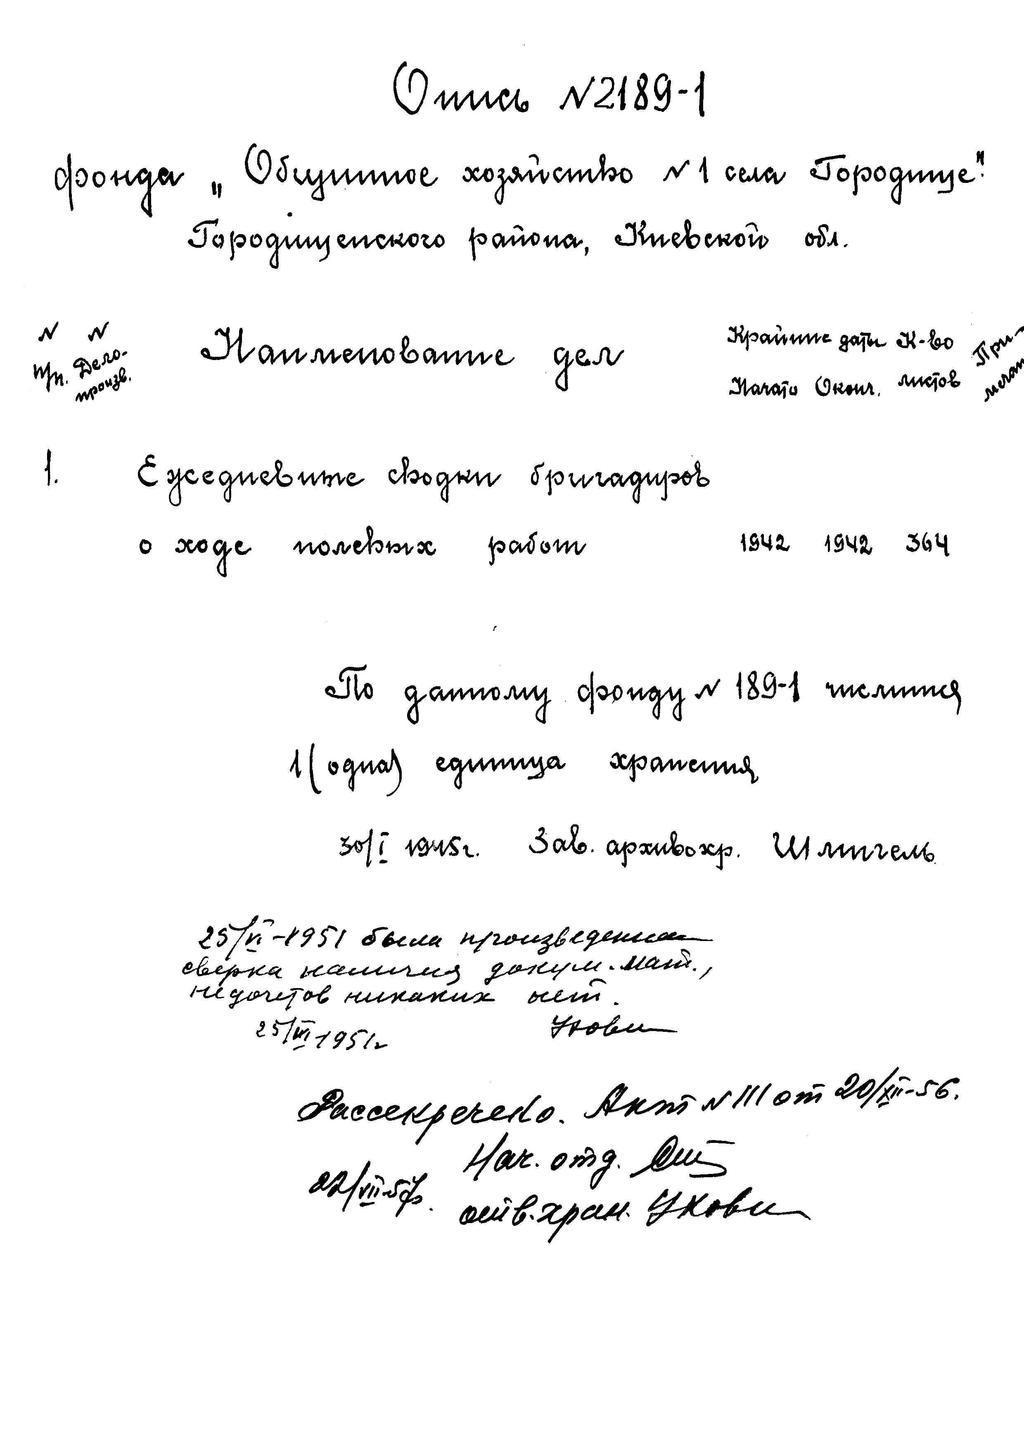 Опись №2189-1
фонда „Общинное хозяйство №1 села Городище".
Городищенского района, Киевской обл.
N N Наименование дел Крайние даты К-во При-
п/п. Дело- Начато Оконч. листов мечан
произв.
1. Ежедневные сводки бригадиров
о ходе полевых работ 1942 1942 364
По данному фонду № 189-1 числится
1 (одна) единица хранения
30/I 1945г. Зав. архивохр. Шлигель
25/VI-1951 была произведенна
сверка наличия докум. мат.,
недочетов никаких нет.
25/VI 1951г
Рассекречено. Акт № III от 20/XII-56.
Нач. отд.
22/VII-57г. отв. хран.